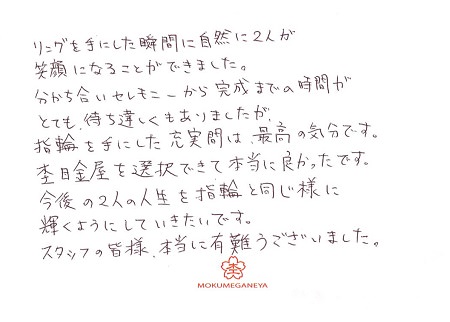 リングを手にした瞬間に自然に2人が
笑顔になることができました。
分かち合いセレモニーから完成までの時間が
とても、待ち遠しくもありましたが、
指輪を手にした充実間は、最高の気分です。
杢目金屋を選択できて本当に良かったです。
今後の2人の人生を指輪と同じ様に
輝くようにしていきたいです。
スタッフの皆様、本当に有難うございました。
杢
MOKUMEGANEYA